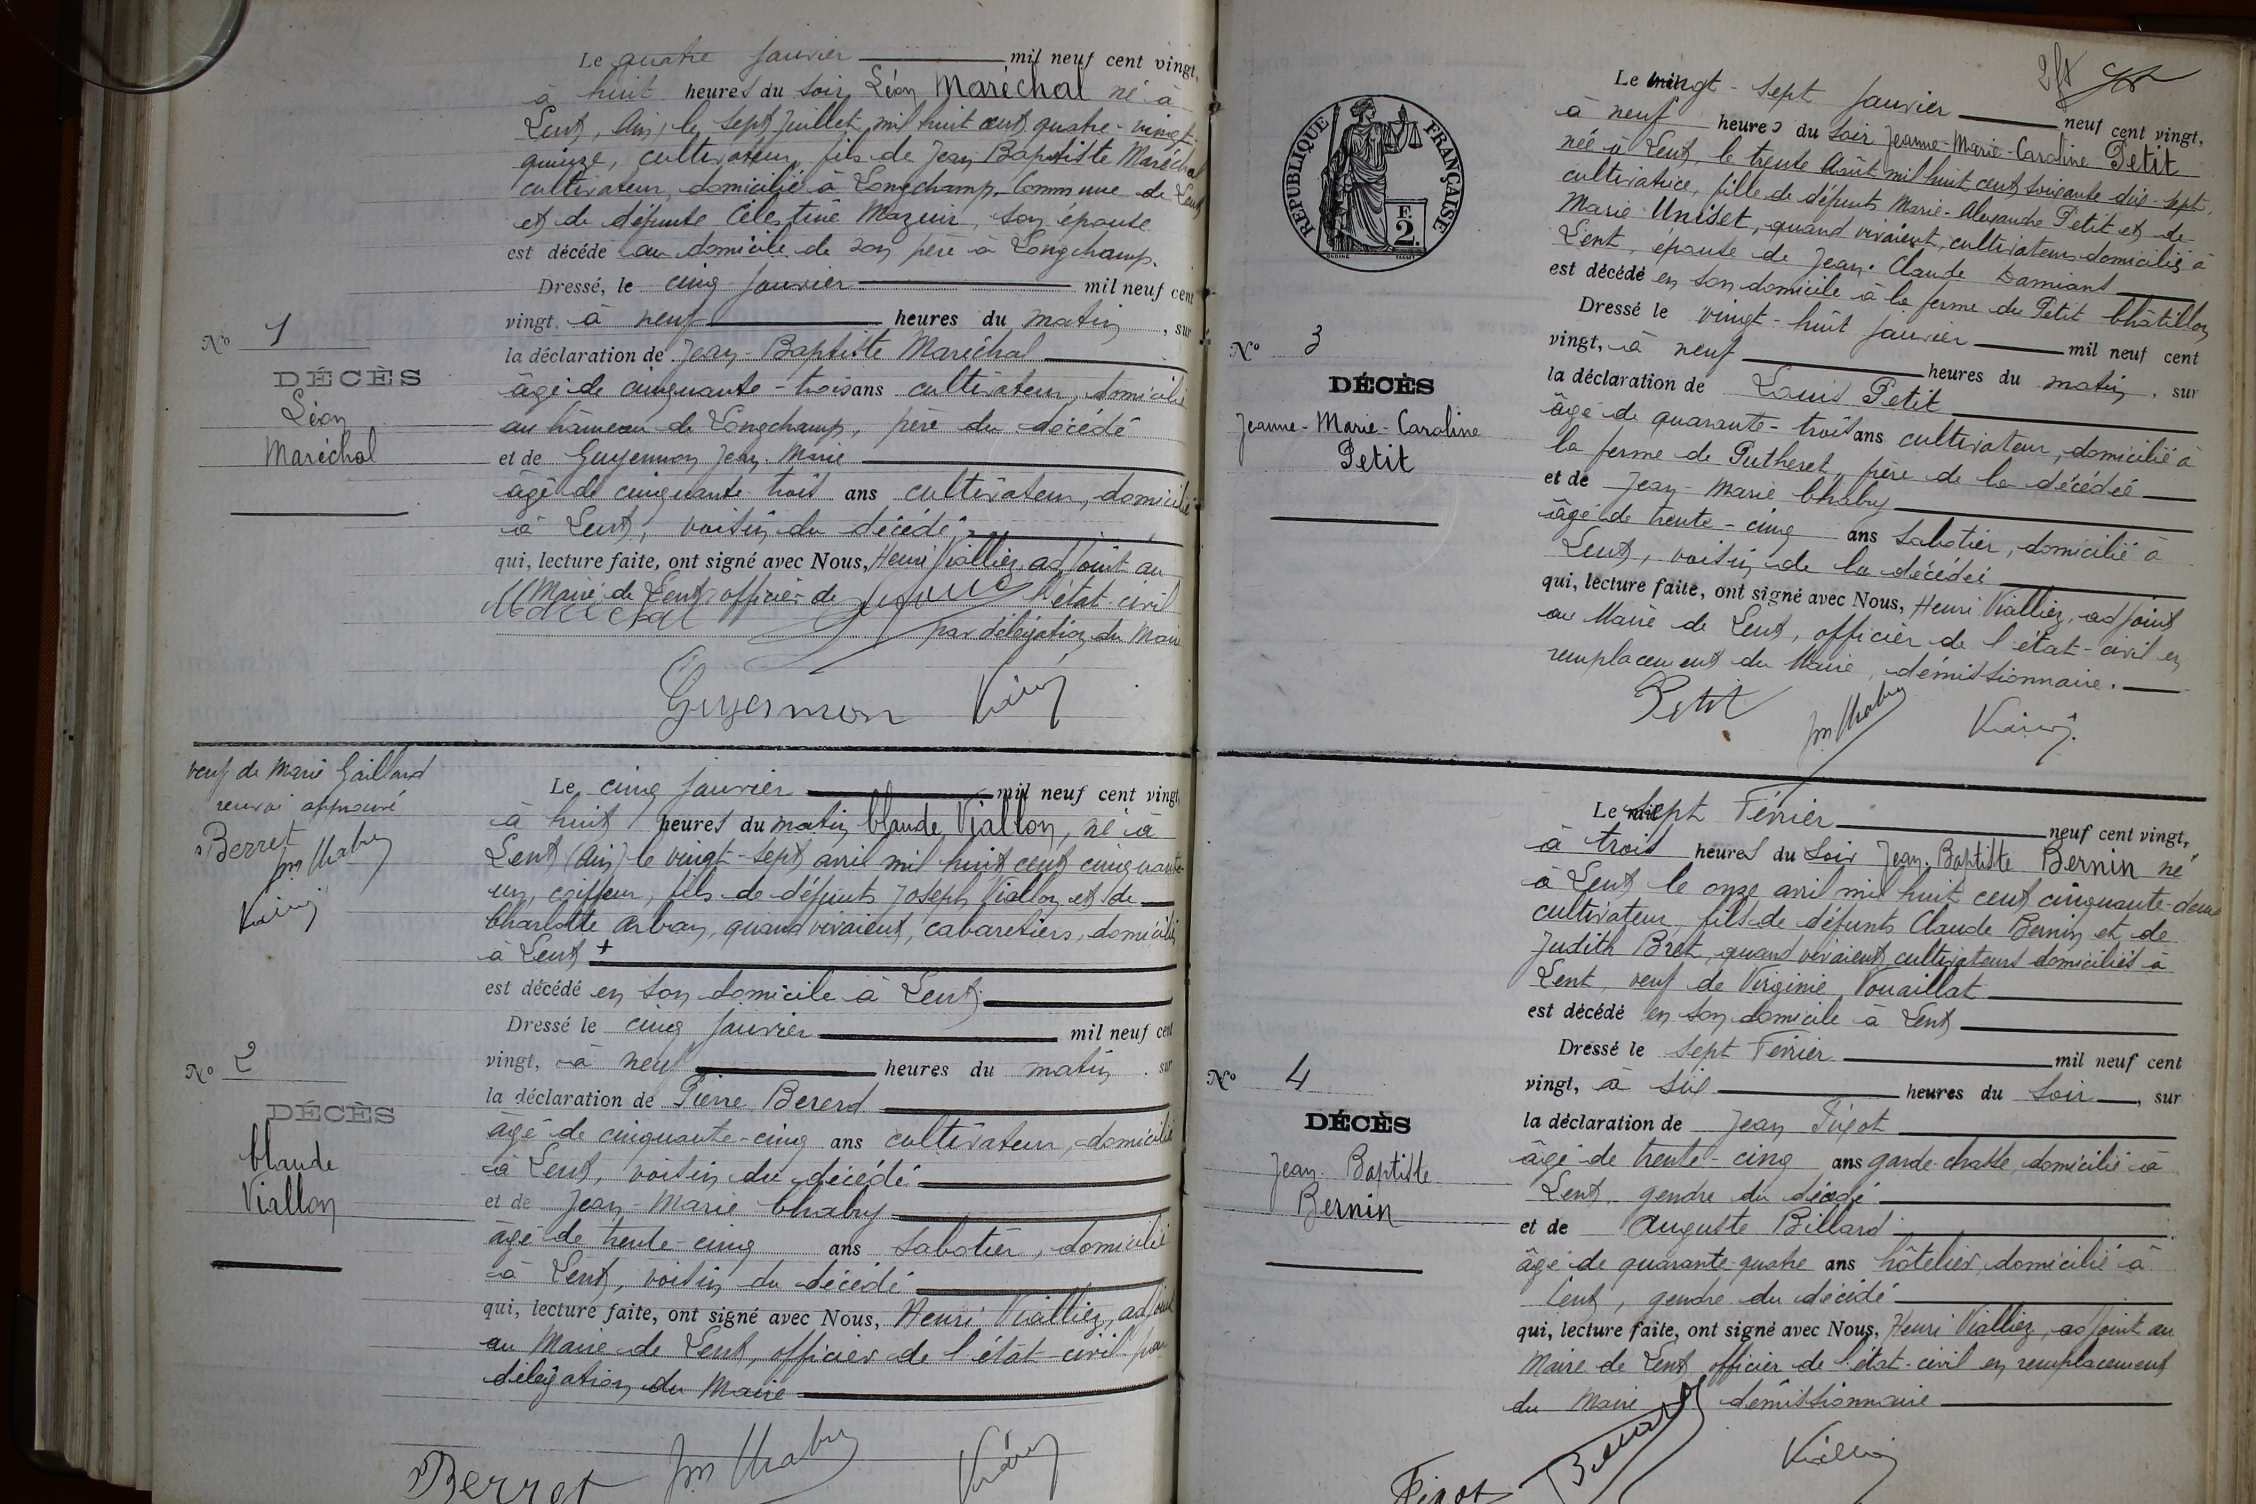 Le quatre Janvier mil neuf cent vingt,
à huit heures du soir, Léon Maréchal né à
Lent, Ain, le sept Juillet mil huit cent quatre-vingt-
quinze, cultivateur, fils de Jean Baptiste Maréchal
cultivateur, domicilié à Longchamp, Commune de Lent
et de défunte Célestine Mazuir, son épouse
est décédé au domicile de son père à Longchamp.
Dressé, le cinq Janvier mil neuf cent
vingt, à neuf heures du matin, sur
la déclaration de Jean-Baptiste Maréchal
âgé de cinquante-trois ans cultivateur, domicilié
au hameau de Longchamp, père du décédé
et de Guyennon Jean Marie
âgé de cinquante trois ans cultivateur, domicilié
à Lent, voisin du décédé
qui, lecture faite, ont signé avec Nous, Henri Vialliez, adjoint au
Maire de Lent, officier de l'état-civil
Maréchal par délégation du Maire
Guyennon
No 1
DÉCÈS
Léon
Maréchal
veuf de Marie Gaillard
renvoi approuvé
Berret
Jm Chabry
Le cinq Janvier mil neuf cent vingt
à huit heures du matin, Claude Viallon, né à
Lent (Ain) le vingt-sept avril mil huit cent cinquante-
un, coiffeur, fils de défunts Joseph Viallon et de
Charlotte Arban, quand vivaient, cabaretiers, domiciliés
à Lent +
est décédé en son domicile à Lent
Dressé le cinq Janvier mil neuf cent
vingt, à neuf heures du matin, sur
la déclaration de Pierre Bererd
âgé de cinquante-cinq ans cultivateur, domicilié
à Lent, voisin du décédé
et de Jean-Marie Chabry
âgé de trente-cinq ans sabotier, domicilié
à Lent, voisin du décédé
qui, lecture faite, ont signé avec Nous, Henri Vialliez, adjoint
au Maire de Lent, officier de l'état-civil par
délégation du Maire
Berret Jm Chabry
No 2
DÉCÈS
Claude
Viallon
RÉPUBLIQUE FRANÇAISE
F.
2.
Le vingt-sept Janvier neuf cent vingt,
à neuf heures du soir Jeanne-Marie-Caroline Petit
née à Lent, le trente Août mil huit cent soixante dix-sept,
cultivatrice, fille de défunts Marie-Alexandre Petit et de
Marie Uniset, quand vivaient, cultivateurs domiciliés à
Lent, épouse de Jean-Claude Damians
est décédé en son domicile à la ferme du Petit Châtillon
Dressé le vingt-huit Janvier mil neuf cent
vingt, à neuf heures du matin, sur
la déclaration de Louis Petit
âgé de quarante-trois ans cultivateur, domicilié à
la ferme de Putheret, frère de la décédée
et de Jean-Marie Chabry
âgé de trente-cinq ans sabotier, domicilié à
Lent, voisin de la décédée
qui, lecture faite, ont signé avec Nous, Henri Vialliez, adjoint
au Maire de Lent, officier de l'état-civil en
remplacement du Maire, démissionnaire.
Petit Jm Chabry
No 3
DÉCÈS
Jeanne-Marie-Caroline
Petit
Le sept Février neuf cent vingt,
à trois heures du soir Jean-Baptiste Bernin né
à Lent le onze avril mil huit cent cinquante-deux
cultivateur, fils de défunts Claude Bernin et de
Judith Bret, quand vivaient cultivateurs domiciliés à
Lent, veuf de Virginie Vouaillat
est décédé en son domicile à Lent
Dressé le sept Février mil neuf cent
vingt, à six heures du soir, sur
la déclaration de Jean Pigot
âgé de trente-cinq ans garde-chasse, domicilié à
Lent, gendre du décédé
et de Auguste Billard
âgé de quarante-quatre ans hôtelier, domicilié à
Lent, gendre du décédé
qui, lecture faite, ont signé avec Nous, Henri Vialliez, adjoint au
Maire de Lent, officier de l'état-civil en remplacement
du Maire démissionnaire
Pigot Billard
No 4
DÉCÈS
Jean-Baptiste
Bernin